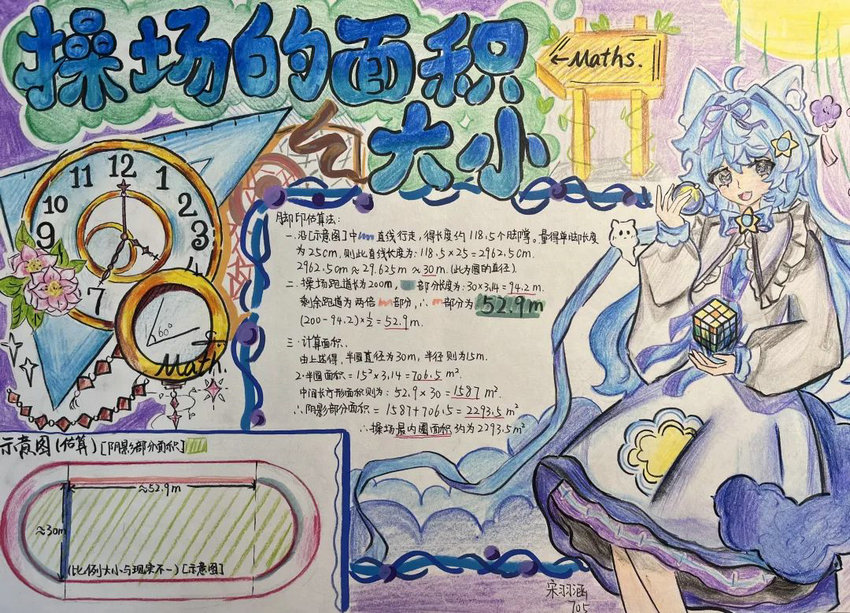 操场的面积
大小
←Maths.
11 12 1
10 2
9 3
7
60°
Math.
脚印估算法:
一.沿[示意图]中 直线行走,得长度约118.5个脚掌.量得单脚长度
为25cm.则此直线长度为:118.5×25=2962.5cm.
2962.5cm≈29.625m≈30m.(此为圆的直径).
二.操场跑道长为200m, 部分长度为:30×3.14=94.2m.
剩余跑道为两倍 部分,∴ 部分为52.9m
(200-94.2)×½=52.9m.
三.计算面积.
由上述得,半圆直径为30m,半径则为15m.
2.半圆面积=15²×3.14=706.5m².
中间长方形面积则为:52.9×30=1587m²
∴阴影部分面积=1587+706.5=2293.5m²
∴操场最内圈面积约为2293.5m²
示意图(估算)[阴影部分面积]
≈52.9m
≈30m
(比例大小与现实不一)[示意图]
宋羽涵
705